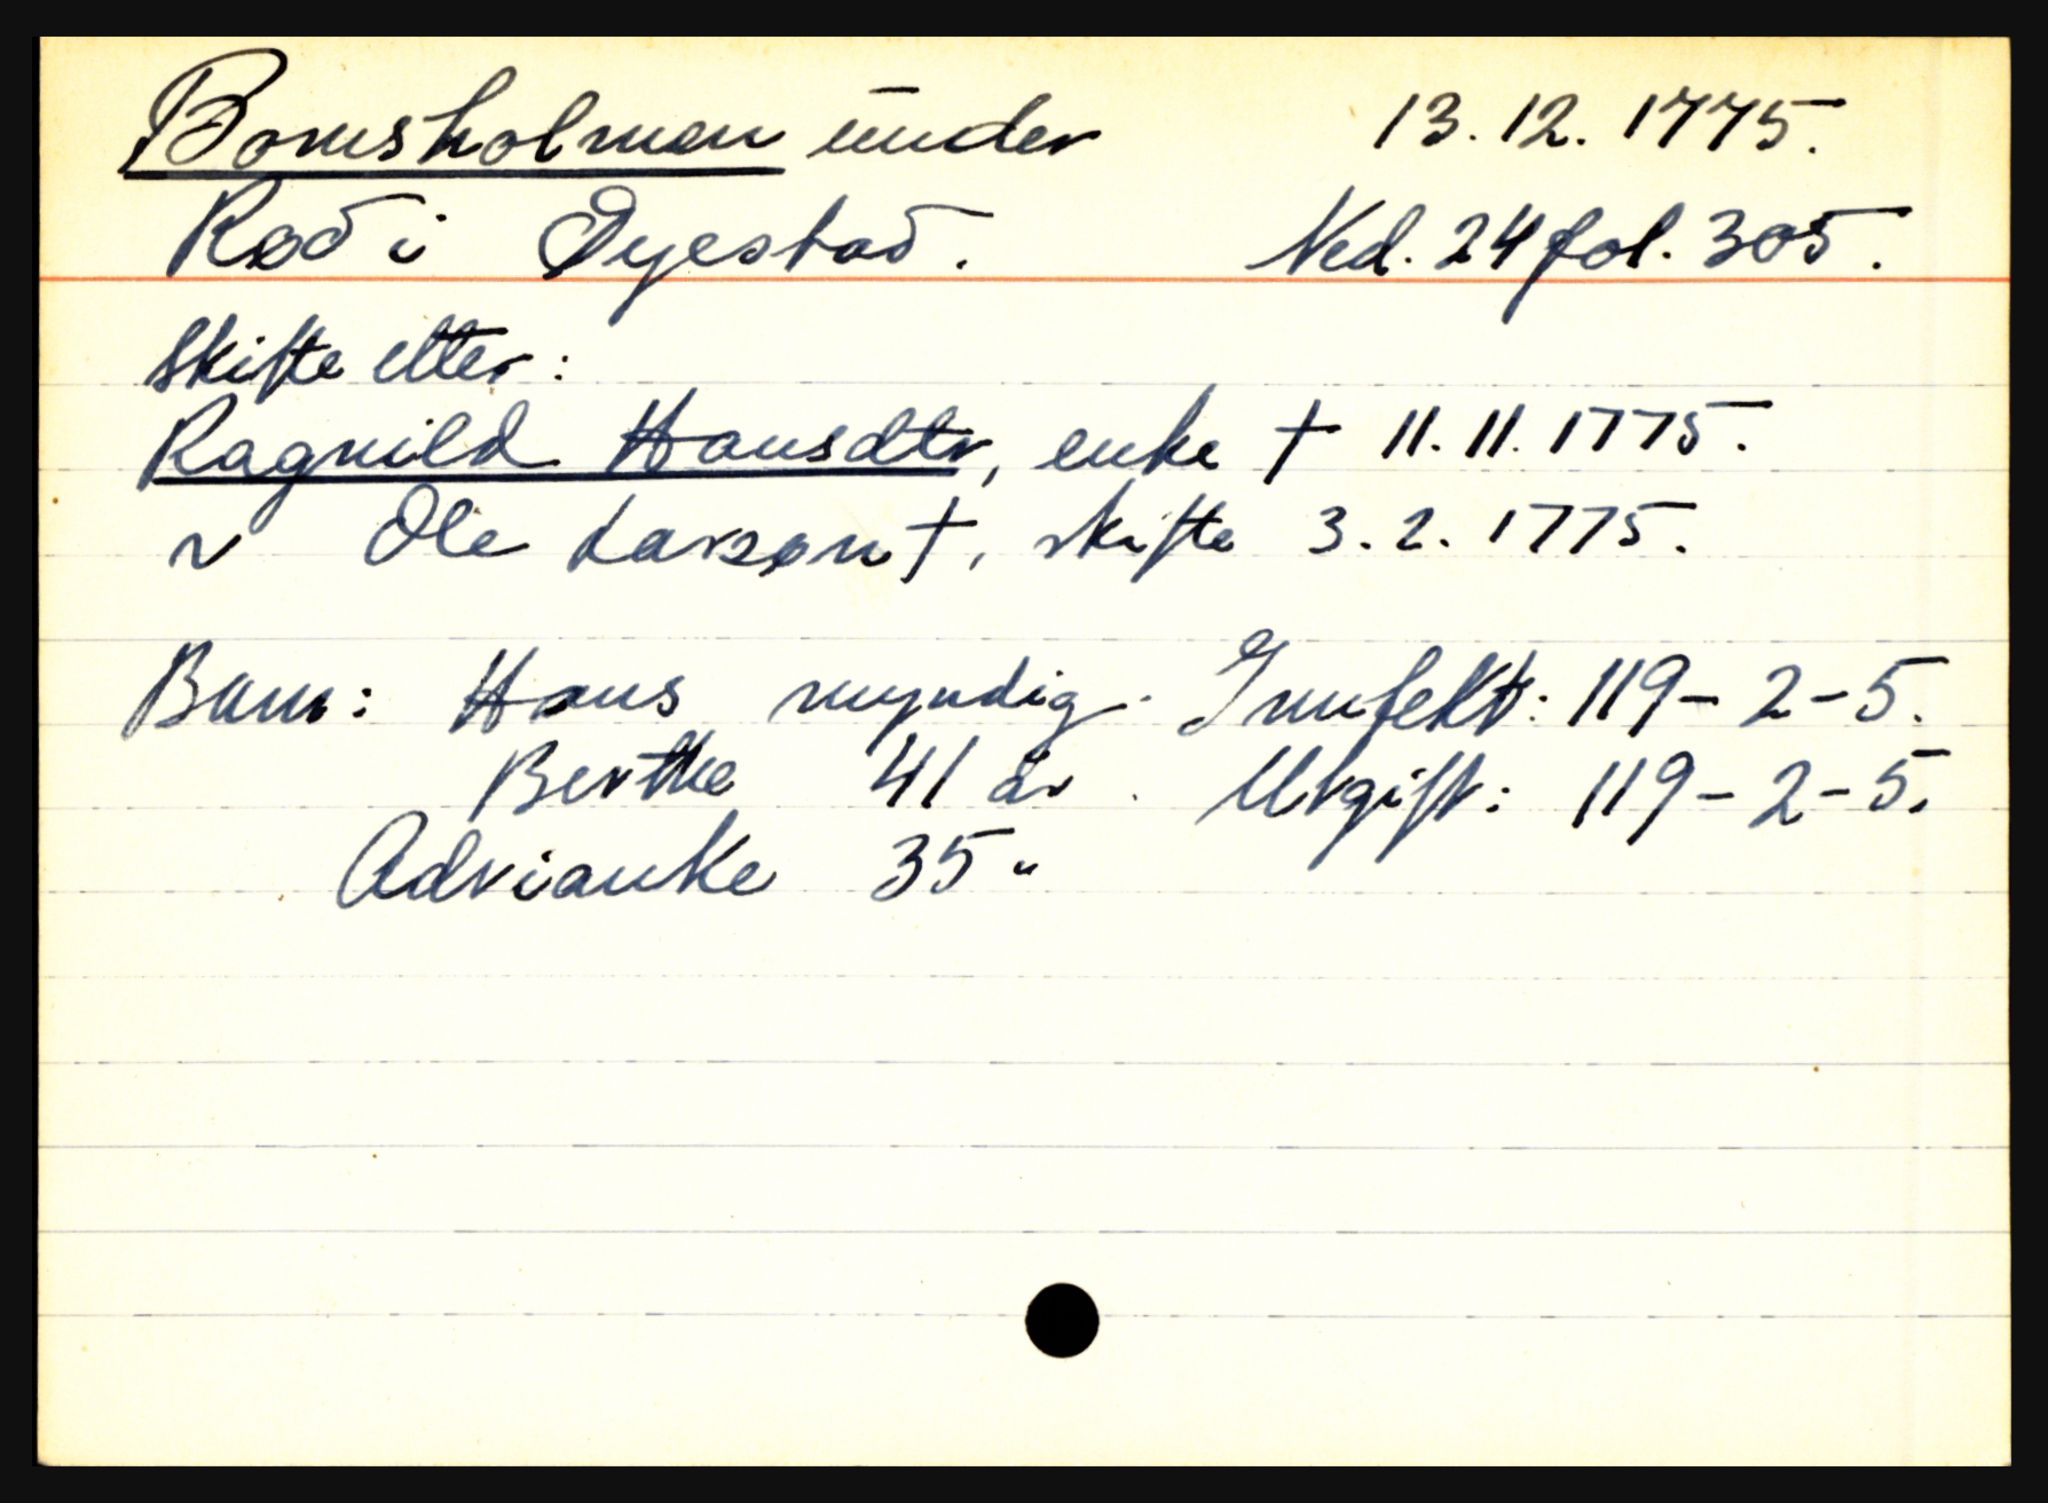 Bomsholmen under 13.12.1775.
Rød i Øyestad. Ned. 24 fol. 305.
Skifte etter:
Ragnild Hansdtr, enke † 11.11.1775.
v Ole Larsøn †, skifte 3.2.1775.
Barn: Hans myndig. Innfekt: 119-2-5.
Berthe 41 år. Utgift: 119-2-5.
Adrianke 35 "